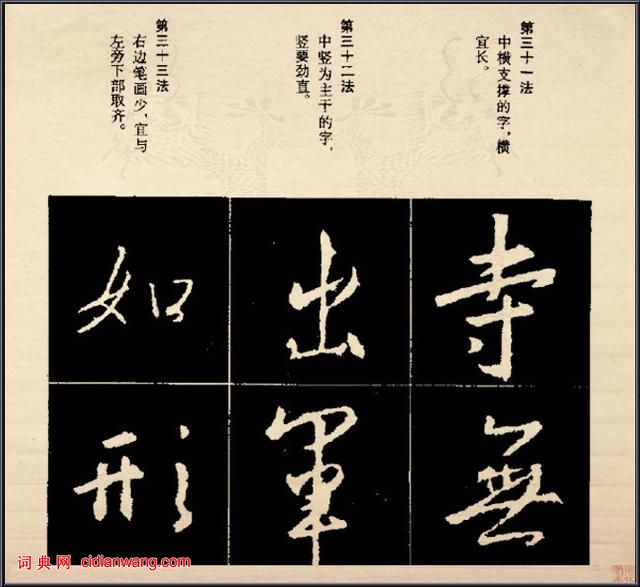 第三十一法
中横支撑的字，横
宜长。
第三十二法
中竖为主干的字，
竖要劲直。
第三十三法
右边笔画少，宜与
左旁下部取齐。
寺
無
出
軍
如
形
词典网 cidianwang.com